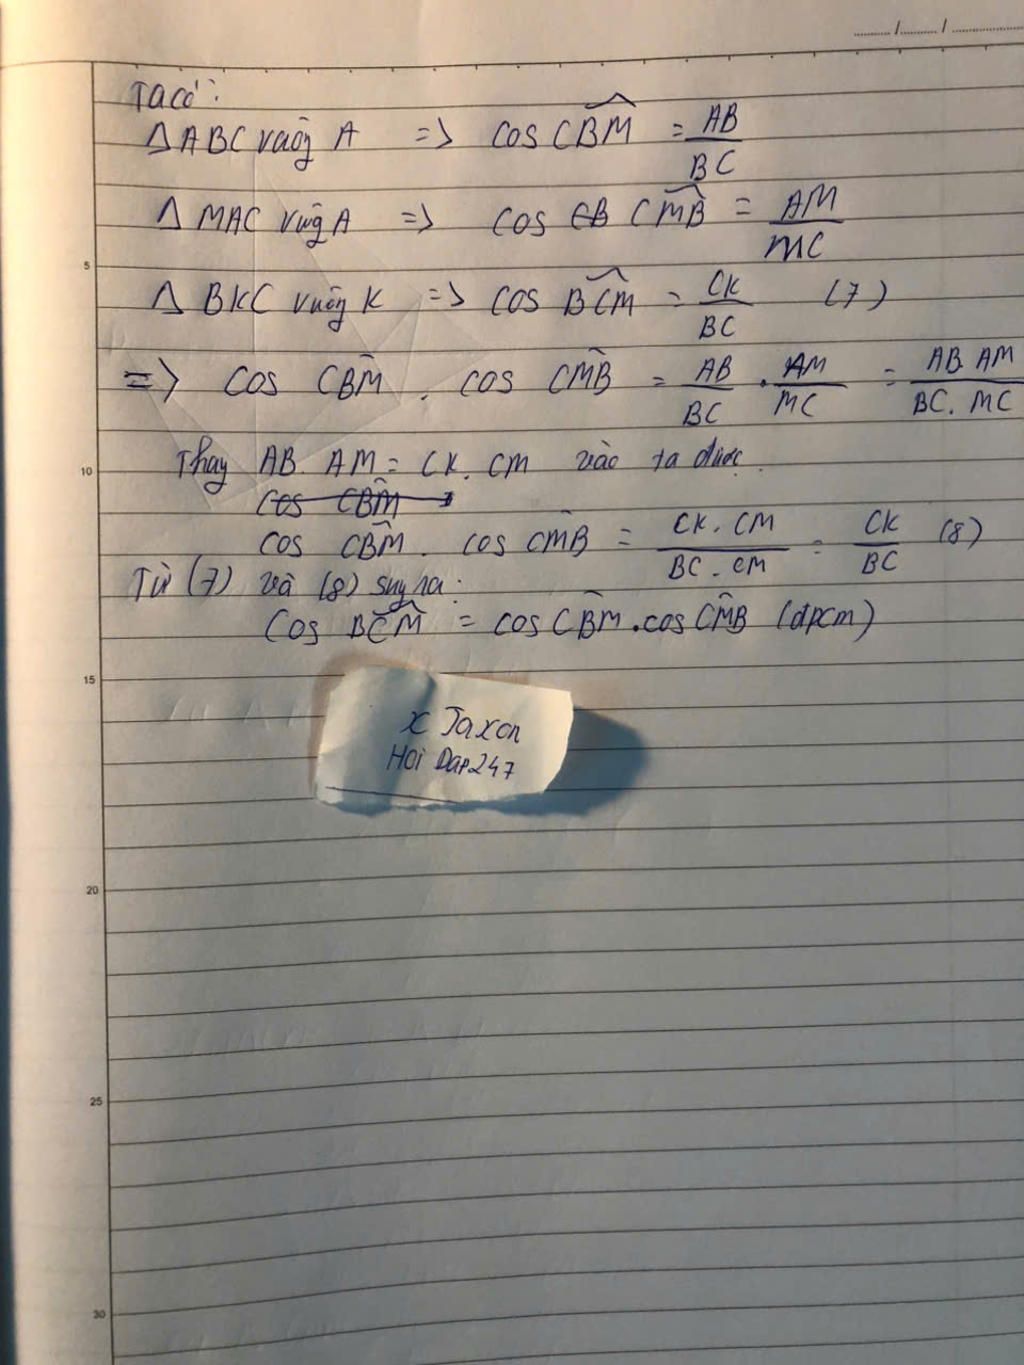 ...../...../...........
Ta có:
ΔABC vuông A => cos CBM̂ = AB/BC
Δ MAC vuông A => cos CB CMB̂ = AM/MC
Δ BKC vuông K => cos BCM̂ = CK/BC (7)
5
=> cos CBM̂ . cos CMB̂ = AB/BC . AM/MC = AB.AM/BC.MC
Thay AB. AM = CK. CM vào ta được.
10
cos CBM̂
cos CBM̂ . cos CMB̂ = CK.CM/BC.CM = CK/BC (8)
Từ (7) và (8) suy ra:
cos BCM̂ = cos CBM̂ . cos CMB̂ (đpcm)
15
x Jaxon
Hoi Dap247
20
25
30